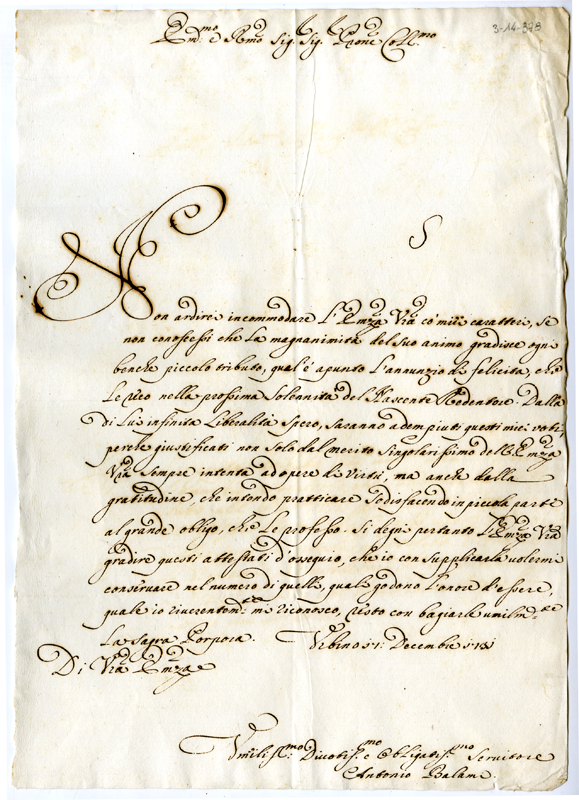 3-14-378
Em:mo e Rmo Sig. Sig. Prone Coll:mo
Non ardirei incommodare L'Emza Vrã co' miei caratteri, se
non conoscessi che La magnanimità del suo animo gradisce ogni
benche piccolo tributo, qual'è apunto L'annunzio di felicità, che
Le reco nella prossima Solennità del Nascente Redentore. Dalla
di Lui infinita Liberalità spero, saranno adempiuti questi miei voti,
perche giustificati non solo dal merito singolarissimo dell'Emza
Vrã sempre intenta ad opere di virtù, ma anche dalla
gratitudine, che intendo pratticare sodisfacendo in piccola parte
al grande obligo, che Le professo. Si degni pertanto L'Emza Vrã
gradire questi attestati d'ossequio, che io con supplicarla volermi
conservare nel numero di quelli, quali godono l'onore d'essere,
quale io riverentem:te mi riconosco, resto con bagiarle umilm:te
La Sagra Porpora. Urbino Decembre
Di Vrã Emza
Umiliss:mo Divotiss:mo e Obligatiss:mo Servitore
Antonio